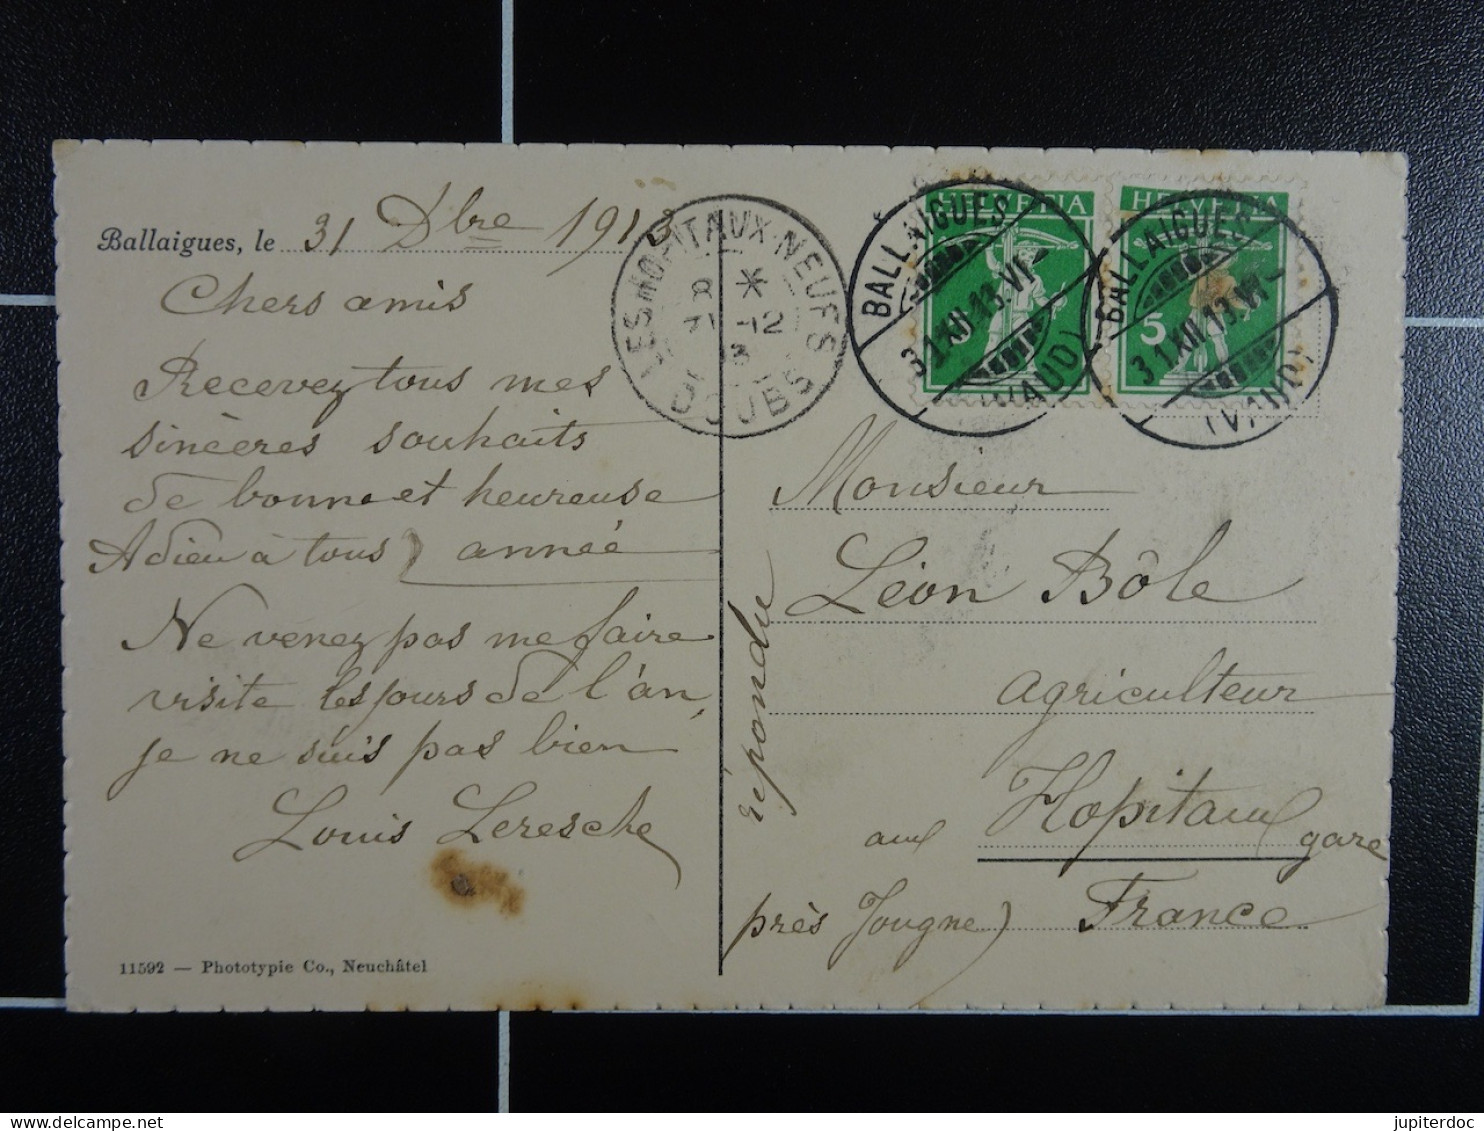 Ballaigues, le 31 Dbre 1913
Chers amis
Recevez tous mes
sincères souhaits
de bonne et heureuse
Adieu à tous) année
Ne venez pas me faire
visite les jours de l'an,
je ne suis pas bien
Louis Leresche
11592 — Phototypie Co., Neuchâtel
LES HOPITAUX-NEUFS
8 *
31 -12
13
DOUBS
HELVETIA
BALLAIGUES
31.XII.13.VI-
(VAUD)
HELVETIA
5
BALLAIGUES
31.XII.13.VI-
(VAUD)
Monsieur
Léon Bôle
agriculteur
aux Hopitaux gare
près Jougne) France
répondu
jupiterdoc